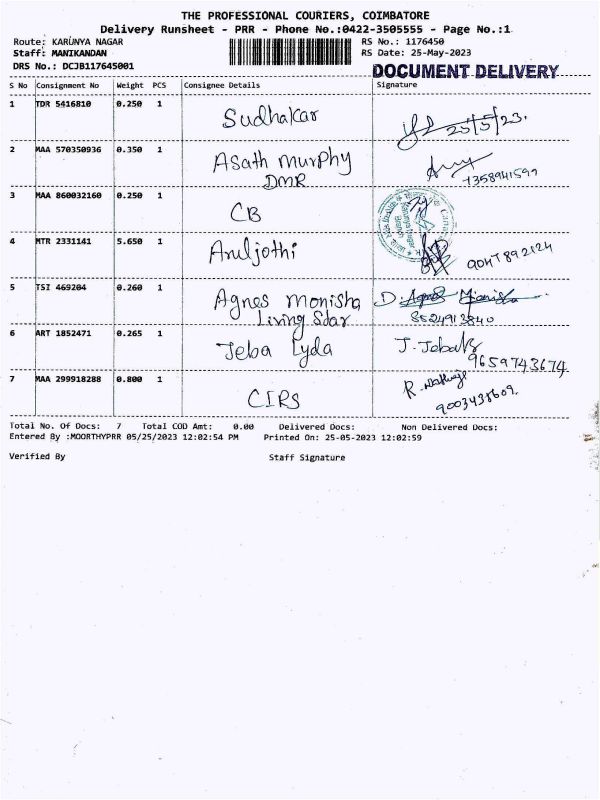 THE PROFESSIONAL COURIERS, COIMBATORE
Delivery Runsheet - PRR - Phone No.:0422-3505555 - Page No.:1
Route: KARUNYA NAGAR RS No.: 1176450
Staff: MANIKANDAN RS Date: 25-May-2023
DRS No.: DCJB117645001 DOCUMENT DELIVERY
S No Consignment No Weight PCS Consignee Details Signature
1 TDR 5416810 0.250 1 Sudhakar 25/5/23.
2 MAA 570350936 0.350 1 Asath Murphy
DMR
3 MAA 860032160 0.250 1 CB
4 MTR 2331141 5.650 1 Aruljothi
5 TSI 469204 0.260 1 Agnes Monisha D. Agnes Monisha
Living Star 8524913840
6 ART 1852471 0.265 1 Jeba Lyda J. Jeba
9659743674
7 MAA 299918288 0.800 1 CIRS R.
9003438609.
Total No. Of Docs: 7 Total COD Amt: 0.00 Delivered Docs: Non Delivered Docs:
Entered By :MOORTHYPRR 05/25/2023 12:02:54 PM Printed On: 25-05-2023 12:02:59
Verified By Staff Signature